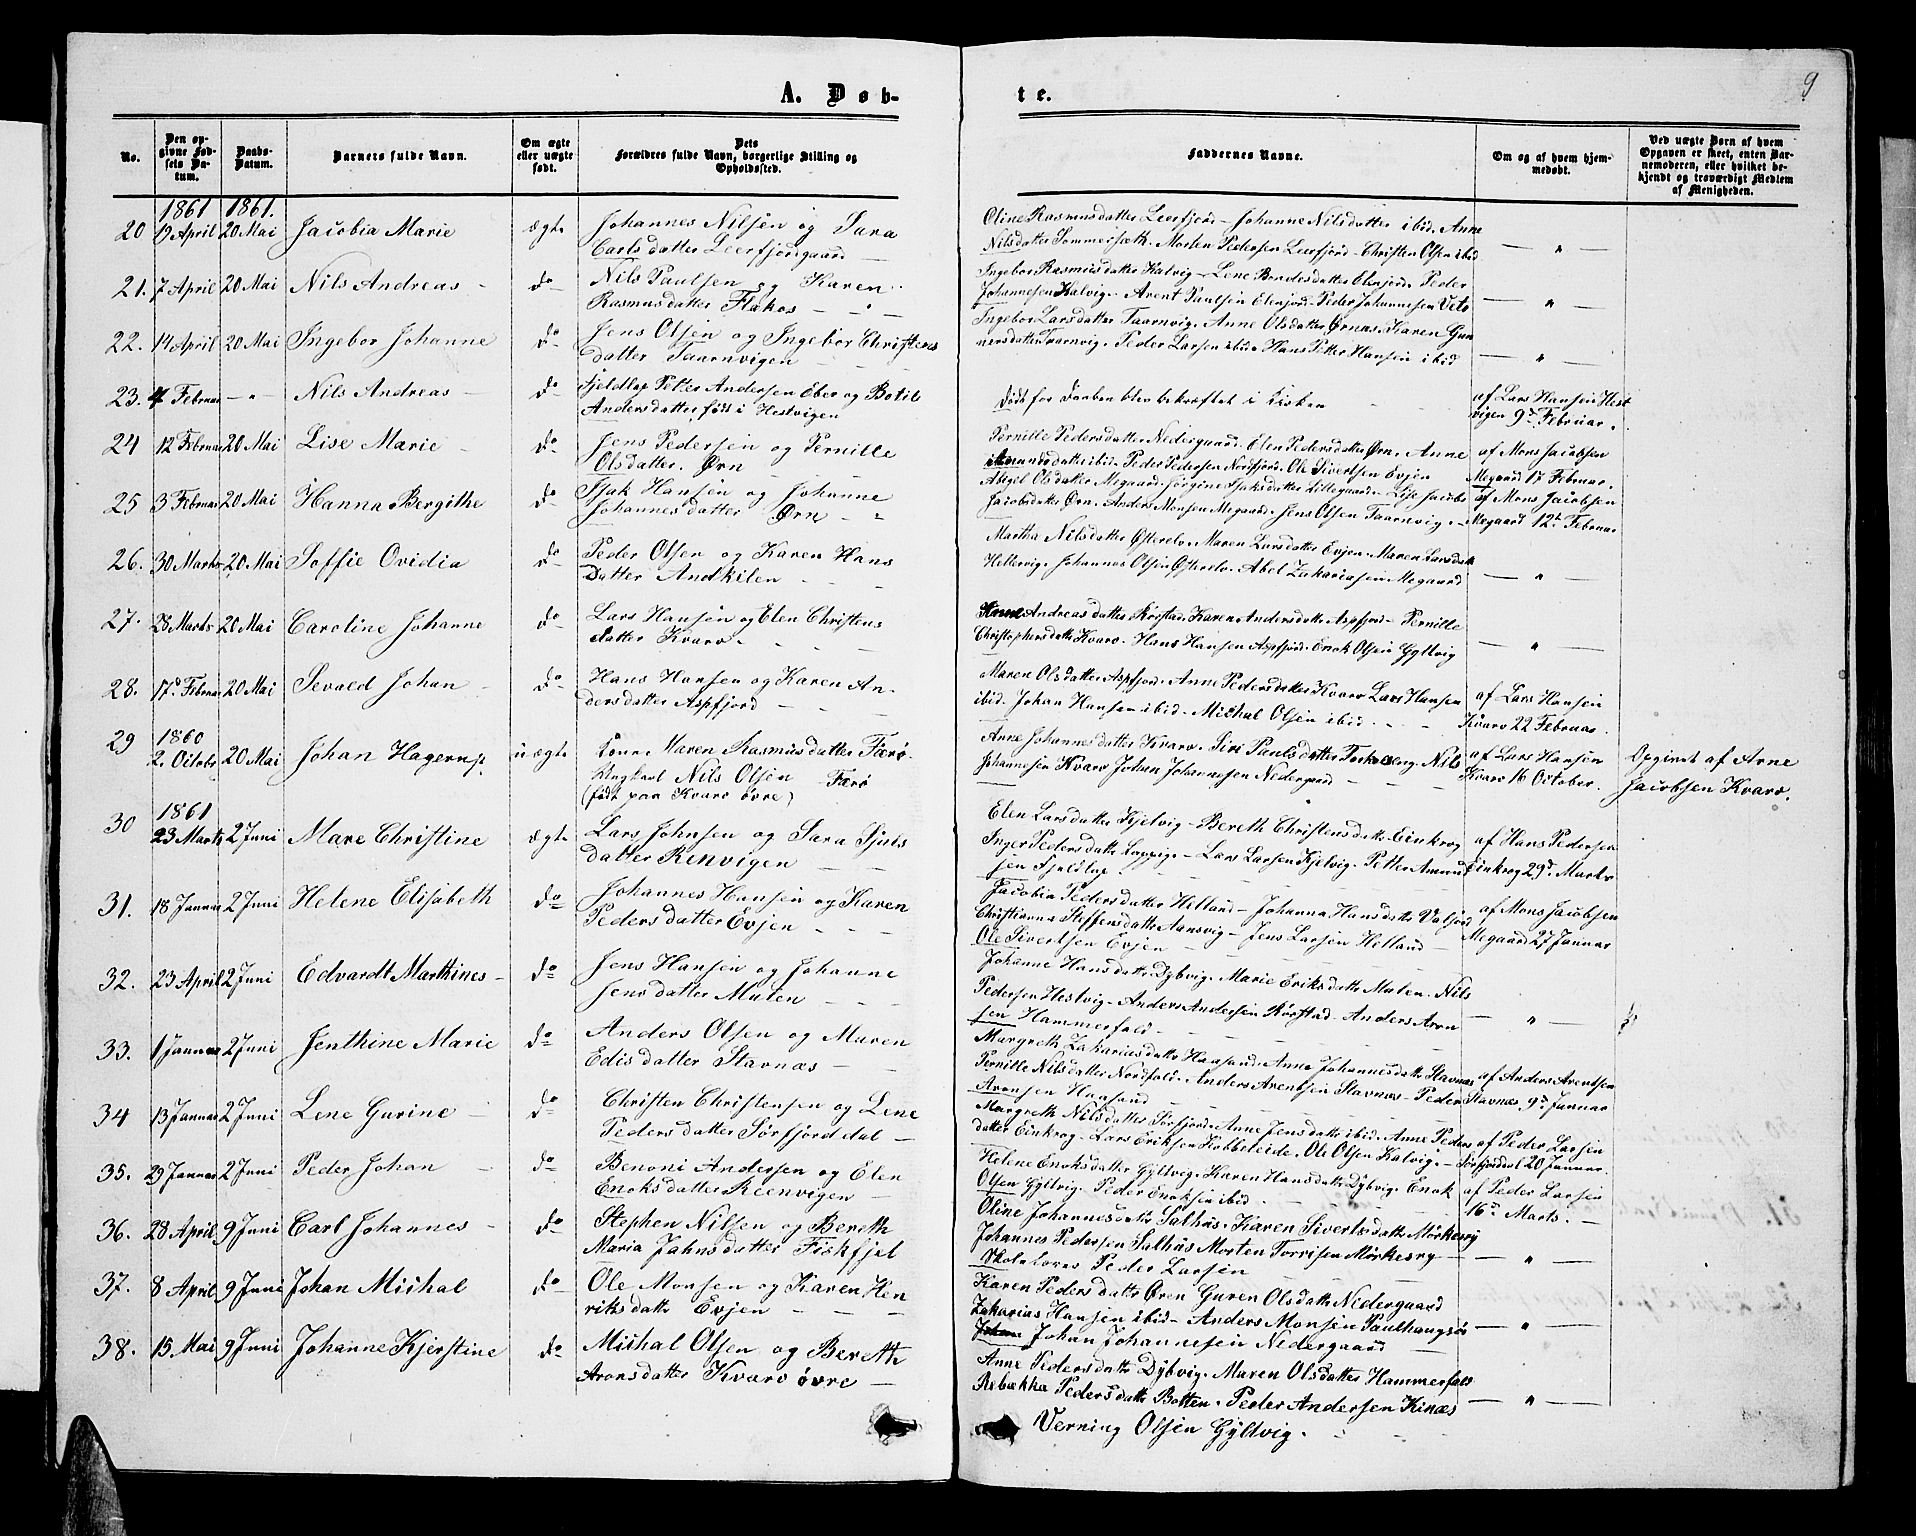 9
A. Døb-
te.
No.
Den opgivne Fødsels Datum.
Daabs-Datum.
Barnets fulde Navn.
Om ægte eller uægte født.
Dets Forældres fulde Navn, borgerlige Stilling og Opholdssted.
Faddernes Navne.
Om og af hvem hjemmedøbt.
Ved uægte Barn af hvem Opgaven er skeet, enten Barnemoderen, eller hvilket bekjendt og troværdigt Medlem af Menigheden.
1861 1861.
20 19 April 20 Mai Jacobia Marie ægte Johannes Nilsen og Sara
Carlsdatter Leerfjorgaard —
Oline Rasmusdatter Leerfjord – Johanne Nilsdatter ibid. Anne
Nilsdatter Sommersæth. Morten Pedersen Leerfjord – Christen Olsen ibid — " —
21. 7 April 20 Mai Nils Andreas - do Nils Paulsen og Karen
Rasmusdatter Flakos — " —
Ingebor Rasmusdatter Kalvig – Lene Bendesdatter Elvfjord. Peder
Johannesen Kalvig. Arent Paulsen — " —
22. 14 April 20 Mai Ingebor Johanne do Jens Olsen og Ingebor Christens
datter Taarnvigen — — —
Ingebor Larsdatter Taarnvig. Anne Olsdatter Ørnes. Karen Gun
nersdatter Taarnvig. Peder Larsen ibid. Hans Petter Hansen ibid — " —
23. 4 Februar — " — Nils Andreas — do Fjeldlap Petter Andersen Eber og Botil
Andersdatter født i Hestvigen
Dødt før Daaben blev bekræftet i Kirken
af Lars Hansen Hest
vigen 9de Februar.
24 12 Februar 20 Mai Lise Marie - do Jens Pedersen og Pernille
Olsdatter. Ørn —
Pernille Pedersdatter Nedergaard. Elen Pedersdatter Ørn. Anne
Amundsdatter ibid. Peder Pedersen Nordfjord. Ole Sivertsen Evjen
af Mons Jacobsen
Megaard 17 Februar.
25 3 Februar 20 Mai Hanna Bergithe do Isak Hansen og Johanne
Johannesdatter Ørn — "
Abigel Olsdatter Megaard. Jørgine Isaksdatter Lillegaard. Lise Jacobs
Jacobsdatter Ørn. Anders Monsen Megaard. Jens Olsen Taarnvig.
af Mons Jacobsen
Megaard 12te Februar
26. 30 Marts 20 Mai Soffie Ovidia do Peder Olsen og Karen Hans
Datter Andkilen - - -
Martha Nilsdatter Østerelv. Maren Larsdatter Evjen. Maren Larsdatt
Hellervig. Johannes Olsen Østerelv. Abel Zakariasen Megaard — " —
27. 28 Marts 20 Mai Caroline Johanne do Lars Hansen og Elen Christens
datter Kvarv. - - -
Anne Andreasdatter Rørstad. Karen Andersdatter Aspfjord – Pernille
Christophersdatter Kvarv. Hans Hansen Aspfjord. Enok Olsen Gyltvig — " —
28. 17de Februar 20 Mai Sevald Johan - do Hans Hansen og Karen An
dersdatter Aspfjord — - -
Maren Olsdatter Aspfjord. Anne Pedersdatter Kvarv Lars Hansen
ibid. Johan Hansen ibid. Michal Olsen ibid. - -
af Lars Hansen
Kvarv 22 Februar
1860
29 2. Octobr 20 Mai Johan Hagerup. uægte Maren Rasmusdatter Færø.
Ungkarl Nils Olsen Færø
(født paa Kvarv øvre)
Anne Johannesdatter Kvarv. Siri Paulsdatter Nils
Johannesen Kvarv Johan Johannesen Nedergaard —
af Lars Hansen
Kvarv 16 October.
Opgivet af Arne
Jacobsen Kvarv.
1861
30 23 Marts 2 Juni Mare Christine ægte Lars Johnsen og Sara Sjuls
datter Renvigen — —
Elen Larsdatter Kjelvig – Bereth Christensdatter Einkrog
Inger Pedersdatter – Lars Larsen Kjelvig. Petter Amund
sen Fjeldlap.
af Hans Pedersen
Einkrog 29de Marts
31. 18 Januar 2 Juni Helene Elisabeth do Johannes Hansen og Karen
Pedersdatter Evjen - - -
Jacobia Pedersdatter Helland – Johanna Hansdatter Valjord
Christianna Steffensdatter Aansvig – Jens Larsen Helland —
Ole Sivertsen Evjen —
af Mons Jacobsen
Megaard 27 Januar
32. 23 April 2 Juni Edvardt Marthines - do Jens Hansen og Johanne
Jensdatter Mulen - - -
Johanne Hansdatter Dybvig. Marie Eriksdatter Mulen. Nils
Pedersen Hestvig – Anders Andersen Rørstad – Anders Aron
sen Hammerfald — — " —
33. 1 Januar 2 Juni Jenthine Marie do Anders Olsen og Maren
Edisdatter Stavnæs — —
Margreth Zakariasdatter Haasand. Anne Johannesdatter Stavnæs
Pernille Nilsdatter Nordfold. Anders Arentsen Stavnæs – Peder
Aronsen Haasand
af Anders Arentsen
Stavnæs 9de Januar
34 13 Januar 2 Juni Lene Gurine - do Christen Christensen og Lene
Pedersdatter Sørfjorddal —
Margreth Nilsdatter Sørfjord. Anne Jensdatter ibid. Anne Peders
datter Einkrog – Lars Eriksen Kobbeleide. Ole Olsen Kalvig. —
af Peder Larsen
Sørfjorddal 20 Januar.
35. 29 Januar 2 Juni Peder Johan - do Benoni Andersen og Elen
Enoksdatter Reenvigen —
Helene Enoksdatter Gyltvig. Karen Hansdatter Dybvig. Enok
Olsen Gyltvig. Peder Enoksen ibid. —
af Peder Larsen
16de Marts. —
36. 28 April 9 Juni Carl Johannes - do Stephen Nilsen og Bereth
Maria Jahnsdatter Fiskfjel
Oline Johannesdatter Salhus. Karen Sivertsdatter Mørkesry
Johannes Pedersen Salhus Morten Torrisen Mørkesry —
Skolelærer Peder Larsen — " —
37. 8 April 9 Juni Johan Michal do Ole Monsen og Karen Hen
riksdatter Evjen - - -
Karen Pedersdatter Ørен Guren Olsdatter Nedergaard
Zakarias Hansen ibid – Anders Monsen Paulhaugsør
Johan Johannesen Nedergaard — — " —
38. 15 Mai 9 Juni Johanne Kjerstine do Michal Olsen og Bereth
Aronsdatter Kvarv øvre —
Anne Pedersdatter Dybvig. Maren Olsdatter Hammerfald
Rebækka Pedersdatter Botten. Peder Andersen Kinæs — " —
Verning Olsen Gyltvig.